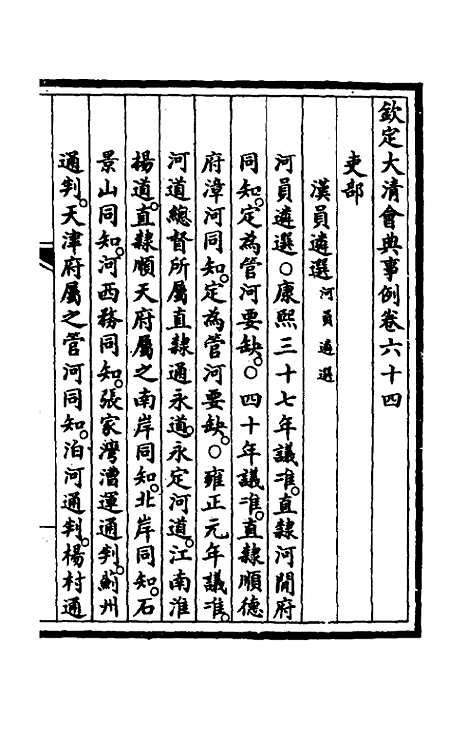 欽定大清會典事例卷六十四
吏部
漢員遴選 河員遴選
河員遴選○康熙三十七年議准。直隸河間府
同知。定為管河要缺。○四十年議准。直隸順德
府漳河同知。定為管河要缺。○雍正元年議准。
河道總督所屬直隸通永道。永定河道。江南淮
揚道。直隸順天府屬之南岸同知。北岸同知。石
景山同知。河西務同知。張家灣漕運通判。薊州
通判。天津府屬之管河同知。泊河通判。楊村通